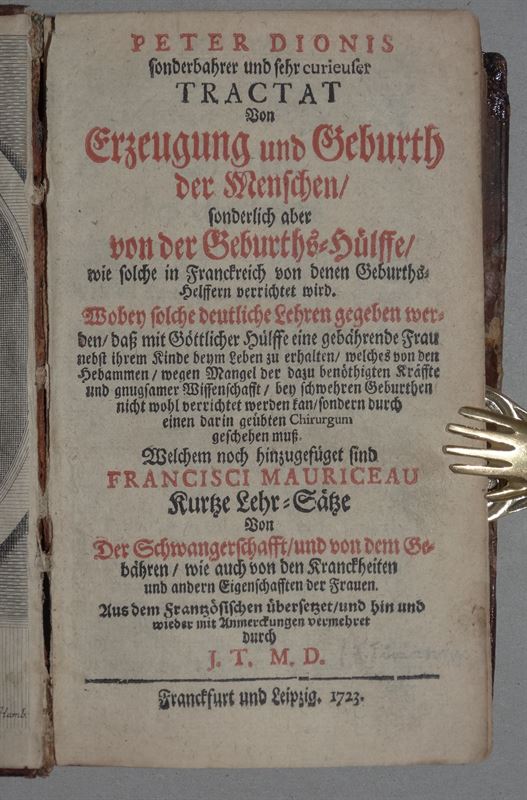 PETER DIONIS
sonderbahrer und sehr curieuser
TRACTAT
Von
Erzeugung und Geburth
der Menschen/
sonderlich aber
von der Geburths-Hülffe/
wie solche in Franckreich von denen Geburths-
Helffern verrichtet wird.
Wobey solche deutliche Lehren gegeben wer-
den/ daß mit Göttlicher Hülffe eine gebährende Frau
nebst ihrem Kinde beym Leben zu erhalten/ welches von den
Hebammen/ wegen Mangel der dazu benöthigten Kräffte
und gnugsamer Wissenschafft/ bey schwehren Geburthen
nicht wohl verrichtet werden kan/ sondern durch
einen darin geübten Chirurgum
geschehen muß.
Welchem noch hinzugefüget sind
FRANCISCI MAURICEAU
Kurtze Lehr-Sätze
Von
Der Schwangerschafft/ und von dem Ge-
bähren/ wie auch von den Kranckheiten
und andern Eigenschafften der Frauen.
Aus dem Frantzösischen übersetzet/ und hin und
wieder mit Anmerckungen vermehret
durch
J. T. M. D.
Franckfurt und Leipzig. 1723.
Hamb.